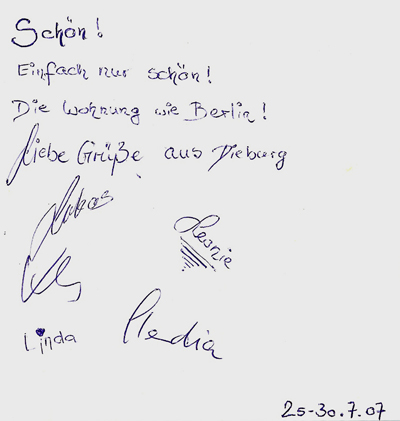 Schön!
Einfach nur schön!
Die Wohnung wie Berlin!
Liebe Grüße aus Dieburg
Lukas
Leonie
Linda
25-30.7.07